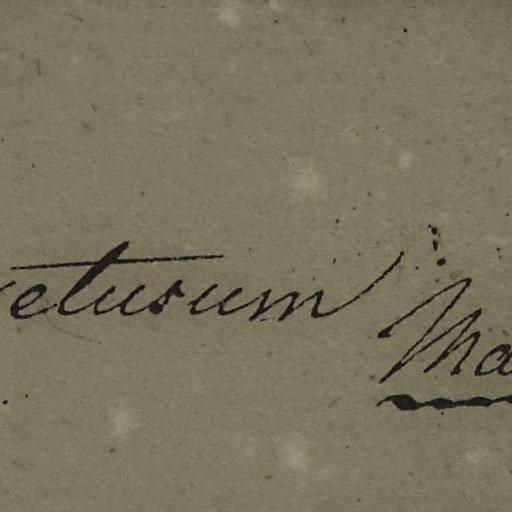 etusum
Ma